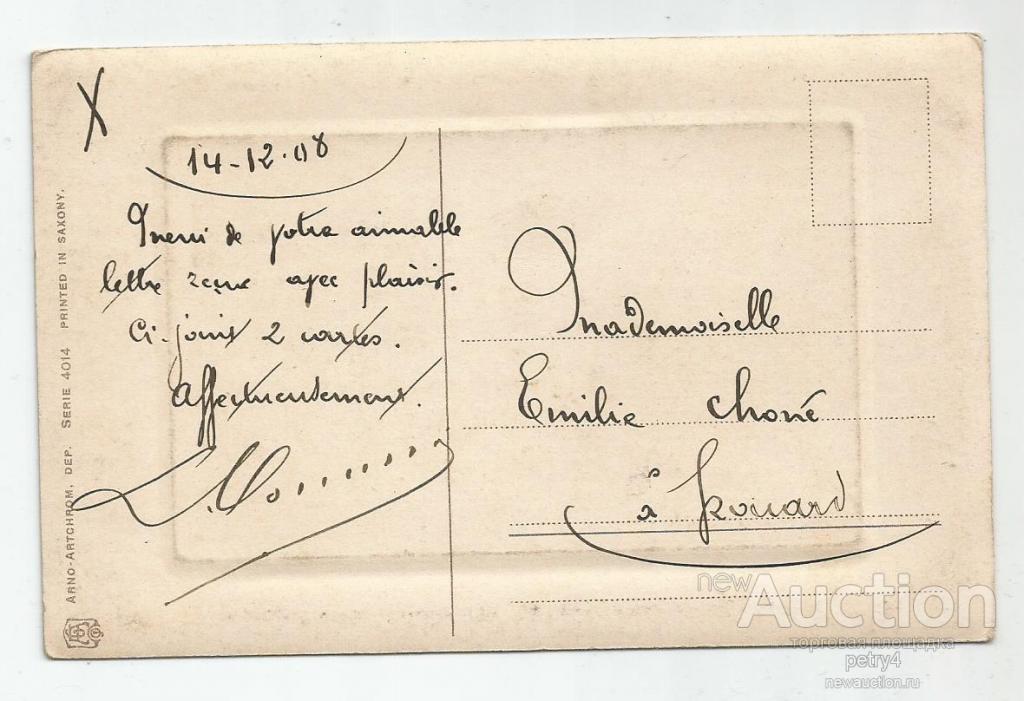 14-12-08
Merci de votre aimable
lettre reçue avec plaisir.
Ci-joint 2 cartes.
Affectueusement.
Mademoiselle
Emilie Choné
à Frouard
ARNO-ARTCHROM, DEP. SERIE 4014 PRINTED IN SAXONY.
newAuction
торговая площадка
petry4
newauction.ru